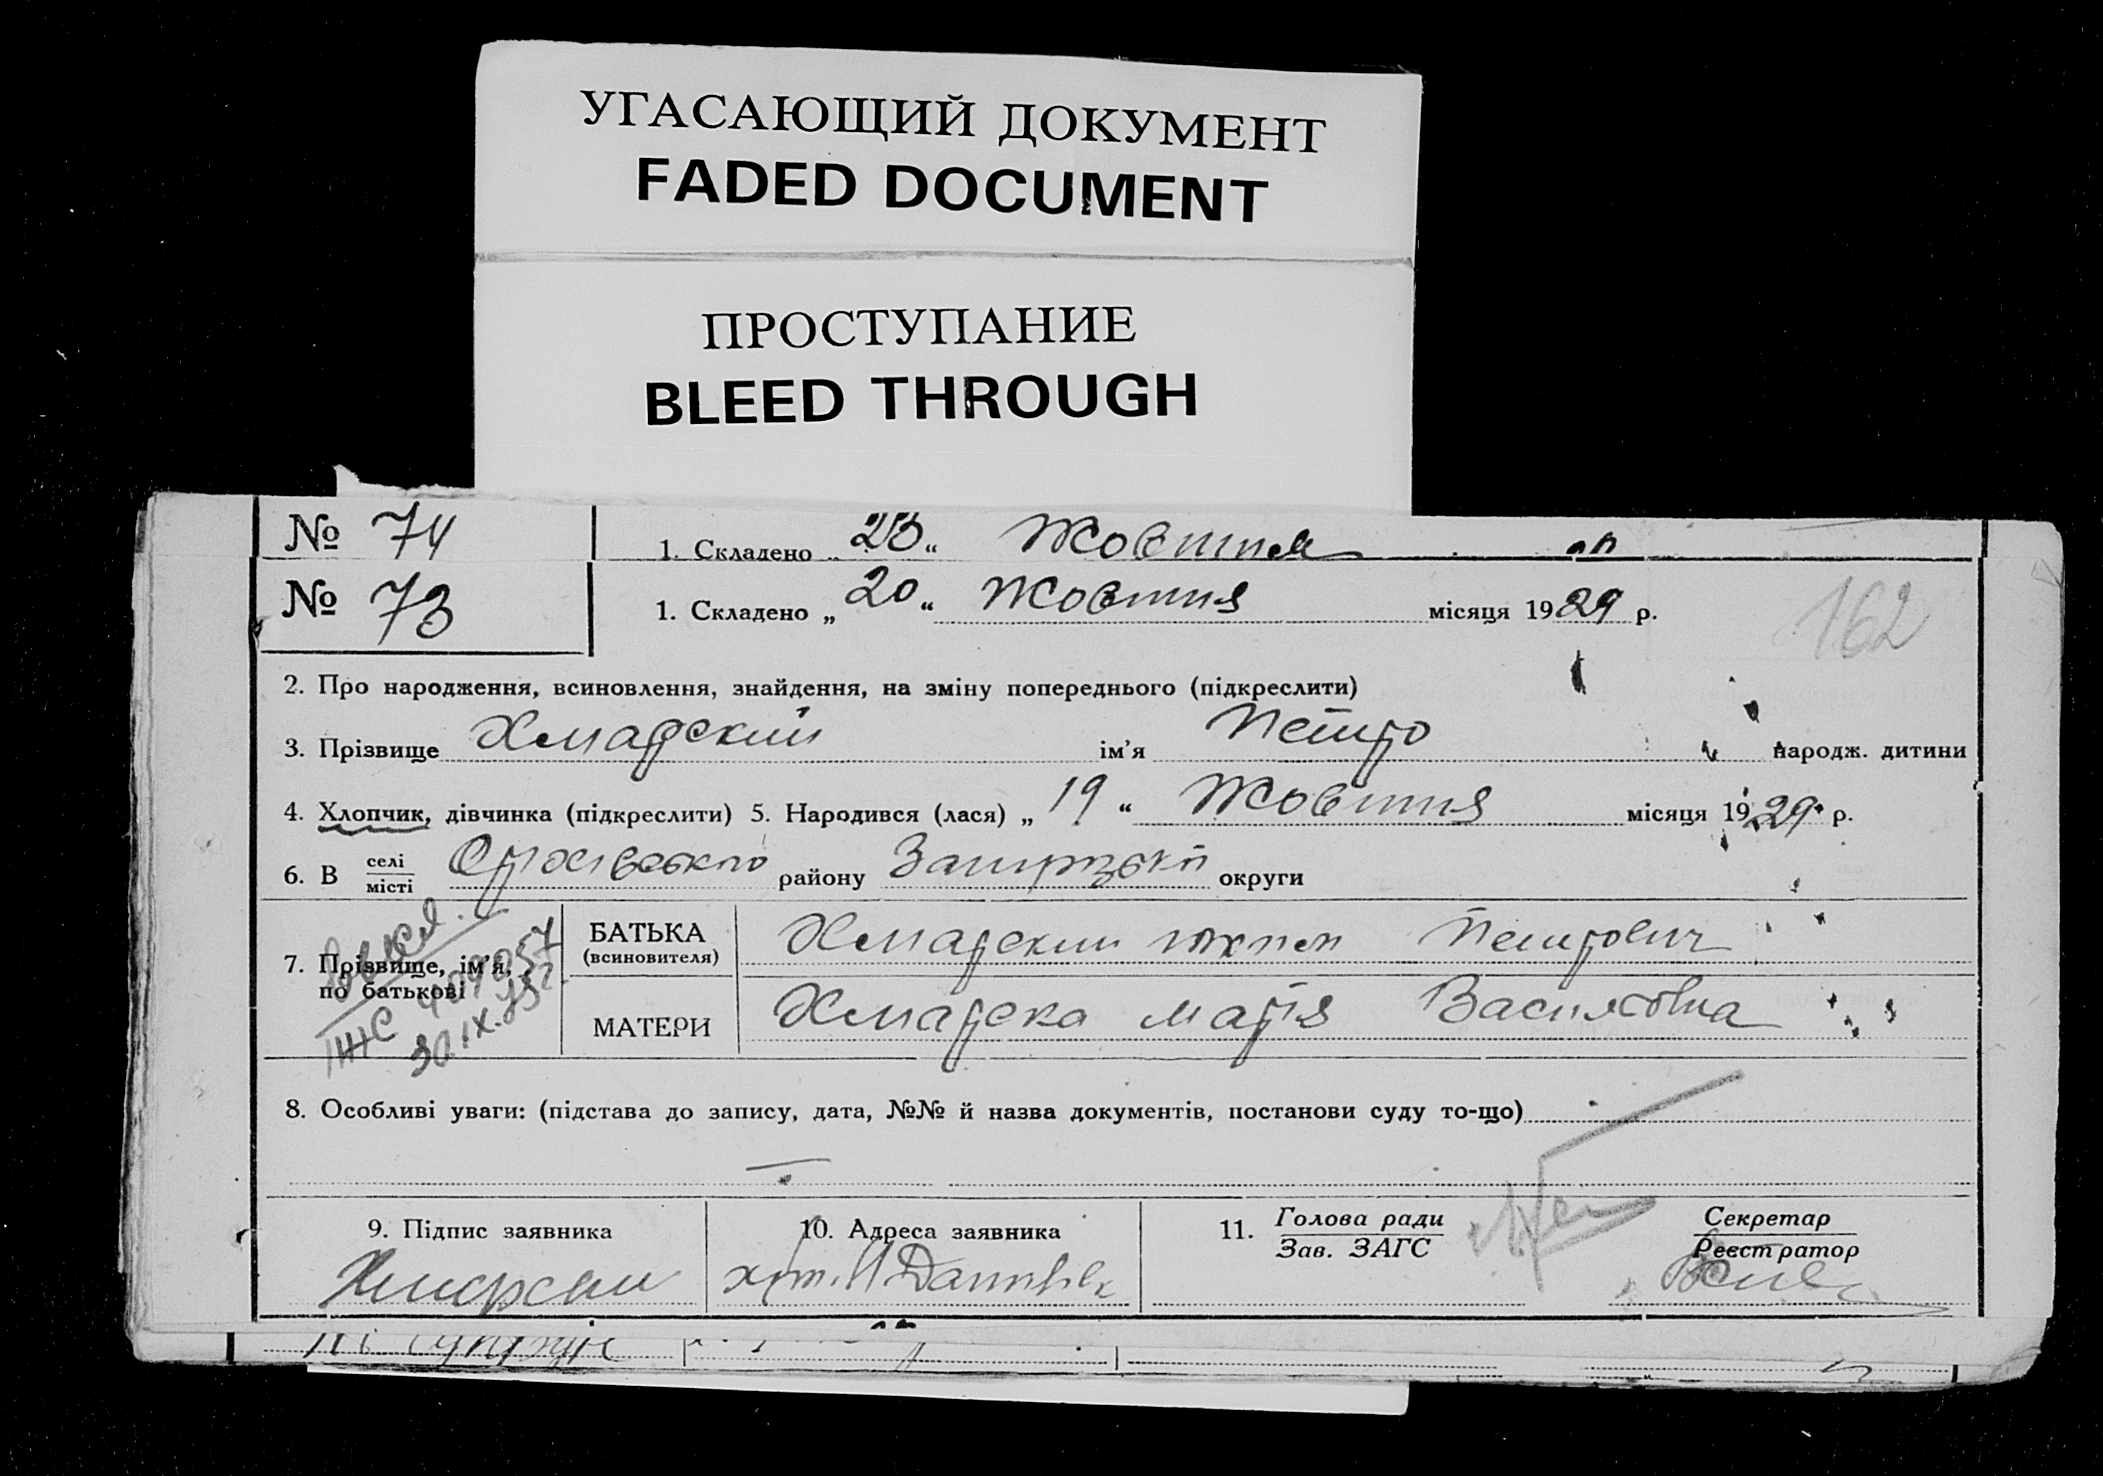 УГАСАЮЩИЙ ДОКУМЕНТ
FADED DOCUMENT
ПРОСТУПАНИЕ
BLEED THROUGH
№ 74 1. Складено „ 23 “ Жовтня
№ 73 1. Складено „ 20 “ Жовтня місяця 1929 р.
162
2. Про народження, всиновлення, знайдення, на зміну попереднього (підкреслити)
3. Прізвище Хмарский ім'я Петро народж. дитини
4. Хлопчик, дівчинка (підкреслити) 5. Народився (лася) „ 19 “ Жовтня місяця 1929 р.
6. В селі місті району округи
7. Прізвище, ім'я, по батькові
409057
30.IX.
БАТЬКА (всиновителя) Хмарский Петрович
МАТЕРИ Хмарска Марія Василовна
8. Особливі уваги: (підстава до запису, дата, №№ й назва документів, постанови суду то-що)
9. Підпис заявника
10. Адреса заявника
11. Голова ради Зав. ЗАГС
Секретар Реєстратор